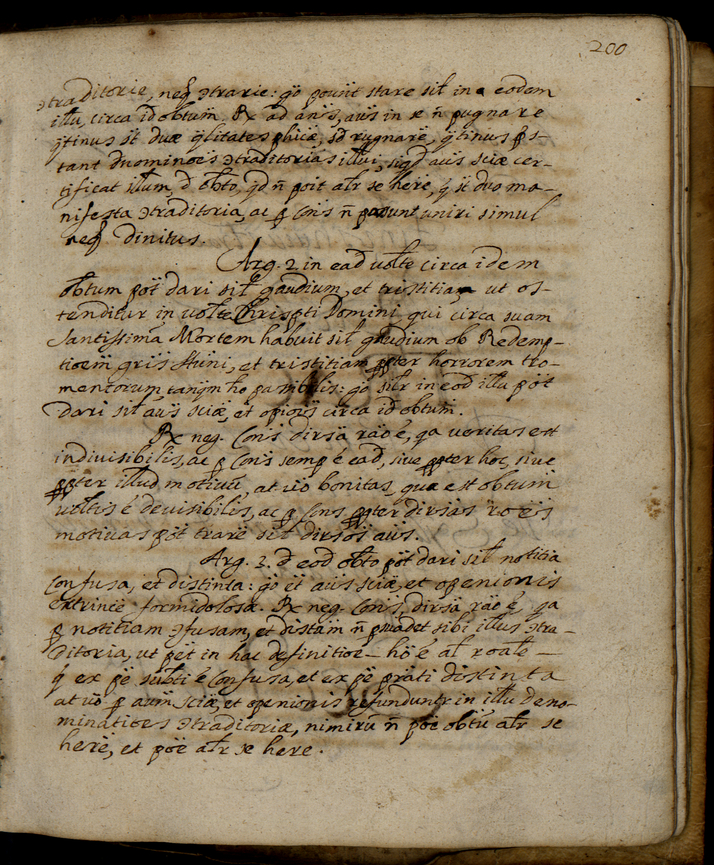 200
ↄtraditorie, neq ↄtrarie: g̈o poẅit stare sil̃ in eodem
illu, circa id obtum̃. Rx ad añis, aũs in se ñ pugnare
q̃tinus st̃ duæ q̃litates phicæ, sd̃ pugnare, q̃tinus ps-
tant duominões ↄtraditorias illui, siq̃d aũs sciæ cer-
tificat illum, d̃ obto, q̃d ñ poit alr̃ se here, q̃ st̃ duo ma-
nifesta ↄtraditoria, ac p Coñs ñ possunt uniri simul
neq dinitus.
Arg. 2 in ead uolte circa idem
obtum pöt dari sil̃ gaudium, et tristitiam ut os-
tenditur in uolte Christi Domini, qui circa suam
Santissima Mortem habuit sil̃ gaudium ob Redemp-
tioem gñis Huni, et tristitiam ppter horrorem tro-
mentorum, tanq̃m ho passibilis: g̈o silr̃ in eod illu pöt
dari sil̃ aũs sciæ, et opiois circa id obtum̃.
Rx neg. Coñs dirsã rãõ ẽ, qa ueritas est
indiuisibilis, ac p Coñs semp ẽ ead, siue ppter hoc, siue
ppter illud motiuũ, at uõ bonitas, quæ est obtum̃
uoltis ẽ deuisibilis, ac p Coñs ppter dirsãs rõẽs
motiuas pöt trarẽ sil̃ dirsõs aũs.
Arg. 3. d̃ eod obto pöt dari sil̃ notitia
Confusa, et distinta: g̈o et aũs sciæ, et openionis
extrince formidolosæ. Rx neg. Coñs, dirsã rãõ ẽ, qa
p notitiam ↄfusam, et distãm ñ psuadet sibi illus ↄtra-
ditoria, ut pẽt in hac definitioe — hõ ẽ al̃ roale —
q̃ ex pẽ subti ẽ Confusa, et ex pẽ p̃rati distinta
at uõ p aũm sciæ, et openionis refunduntr in illũ deno-
minatioes ↄtraditoriæ, nimirũ ñ põe obtũ alr̃ se
herẽ, et põe alr̃ se here.